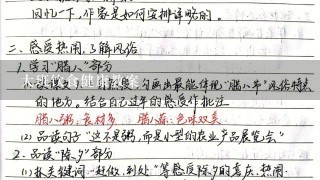 回忆一下,作家是如何安排详略的。
二、感受热闹,了解风俗
1.学习“腊八”部分
勾画出最能体现“腊八节”风俗特点
的地方。结合自己过年的感受作批注
腊八粥:食材多 腊八蒜:色味双美
(2)品读句子“这不是粥,而是小型的农业产品展览会”
2.品读“除夕”部分
(1)抓关键词“赶做、到处”等感受除夕的喜庆、热闹